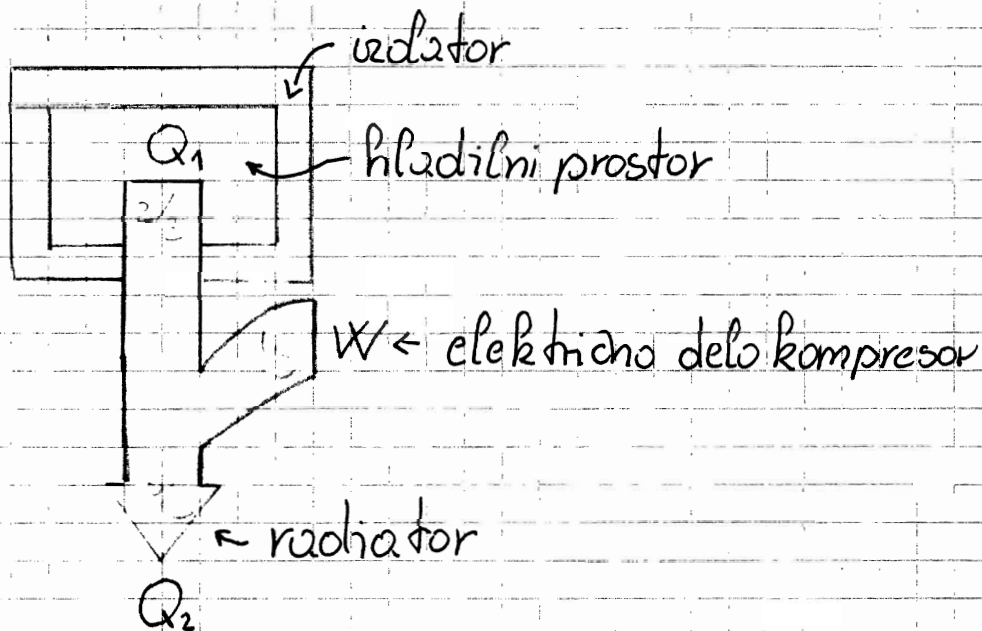 izolator
Q₁
hladilni prostor
W ← električno delo kompresor
← radiator
Q₂